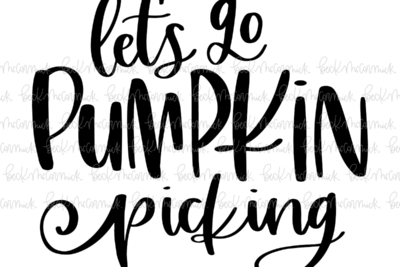 let's go
PUMPKIN
picking